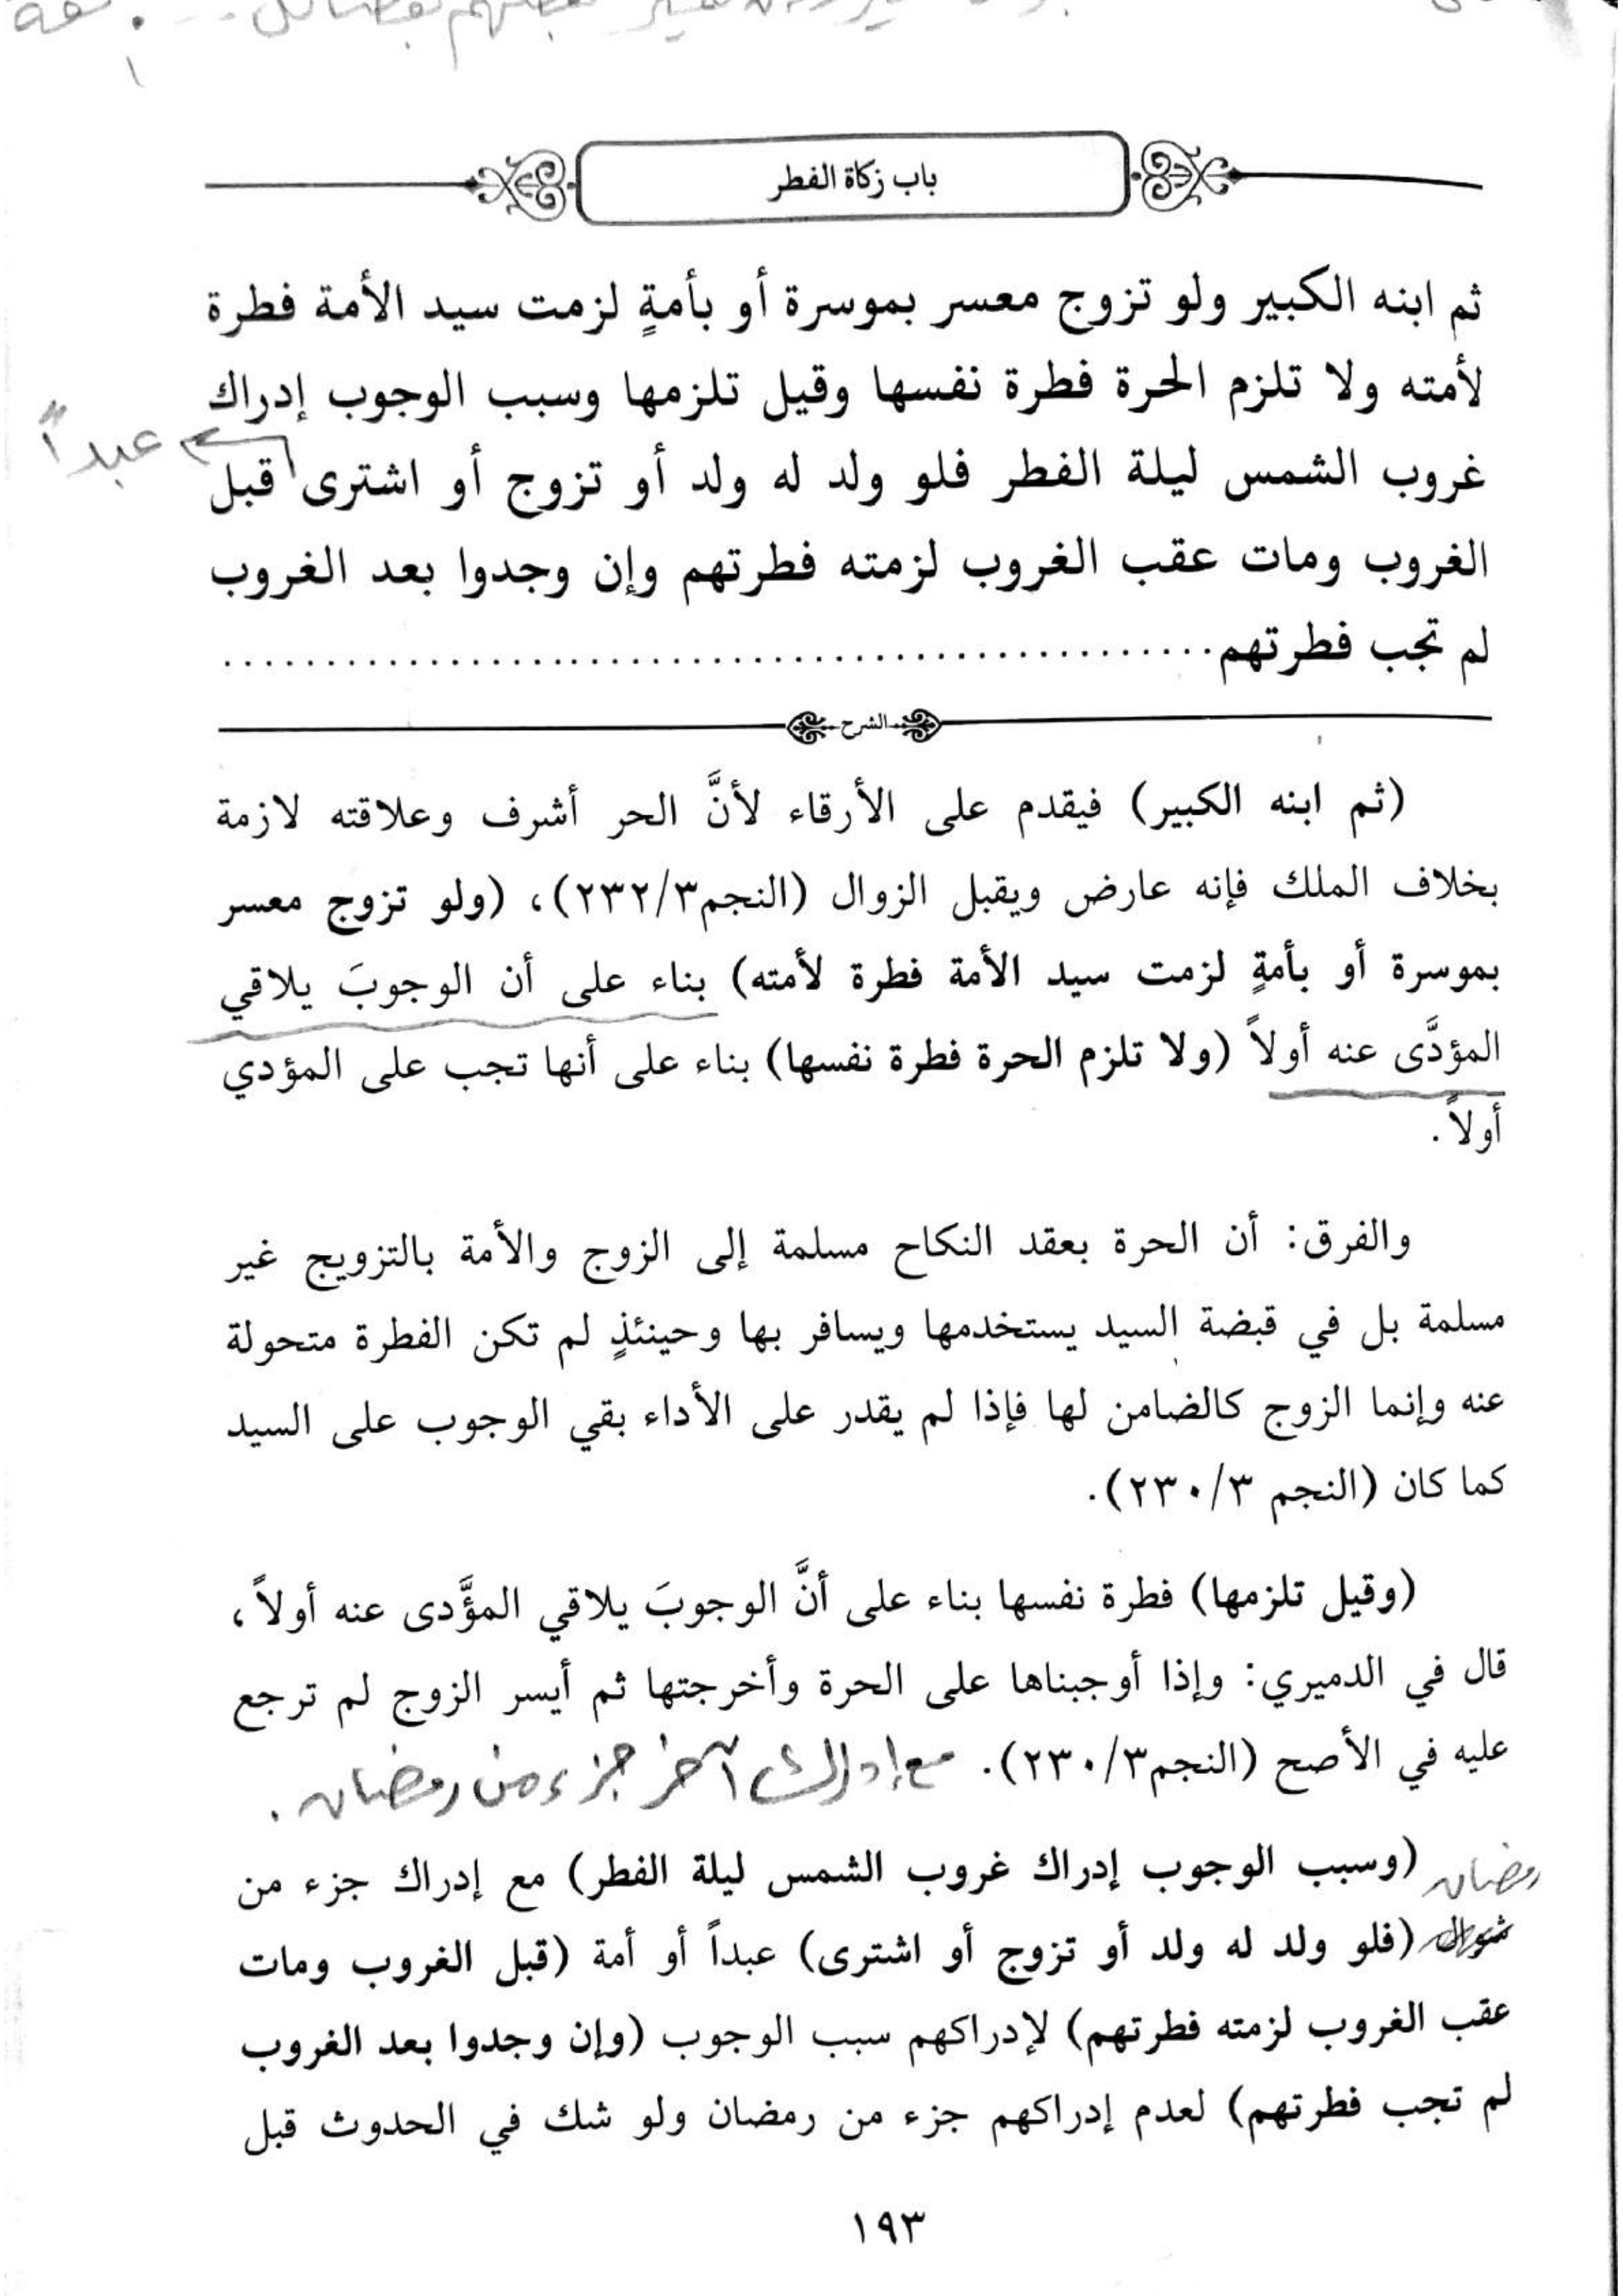 باب زكاة الفطر
ثم ابنه الكبير ولو تزوج معسر بموسرة أو بأمةٍ لزمت سيد الأمة فطرة
لأمته ولا تلزم الحرة فطرة نفسها وقيل تلزمها وسبب الوجوب إدراك
عبداً
غروب الشمس ليلة الفطر فلو ولد له ولد أو تزوج أو اشترى قبل
الغروب ومات عقب الغروب لزمته فطرتهم وإن وجدوا بعد الغروب
لم تجب فطرتهم................................................
الشرح
(ثم ابنه الكبير) فيقدم على الأرقاء لأنَّ الحر أشرف وعلاقته لازمة
بخلاف الملك فإنه عارض ويقبل الزوال (النجم٢٣٢/٣)، (ولو تزوج معسر
بموسرة أو بأمةٍ لزمت سيد الأمة فطرة لأمته) بناء على أن الوجوبَ يلاقي
المؤدَّى عنه أولاً (ولا تلزم الحرة فطرة نفسها) بناء على أنها تجب على المؤدي
أولاً.
والفرق: أن الحرة بعقد النكاح مسلمة إلى الزوج والأمة بالتزويج غير
مسلمة بل في قبضة السيد يستخدمها ويسافر بها وحينئذٍ لم تكن الفطرة متحولة
عنه وإنما الزوج كالضامن لها فإذا لم يقدر على الأداء بقي الوجوب على السيد
كما كان (النجم ٢٣٠/٣).
(وقيل تلزمها) فطرة نفسها بناء على أنَّ الوجوبَ يلاقي المؤَّدى عنه أولاً،
قال في الدميري: وإذا أوجبناها على الحرة وأخرجتها ثم أيسر الزوج لم ترجع
عليه في الأصح (النجم٢٣٠/٣). مع إدراك آخر جزء من رمضان.
(وسبب الوجوب إدراك غروب الشمس ليلة الفطر) مع إدراك جزء من
رمضان
شوال (فلو ولد له ولد أو تزوج أو اشترى) عبداً أو أمة (قبل الغروب ومات
عقب الغروب لزمته فطرتهم) لإدراكهم سبب الوجوب (وإن وجدوا بعد الغروب
لم تجب فطرتهم) لعدم إدراكهم جزء من رمضان ولو شك في الحدوث قبل
١٩٣